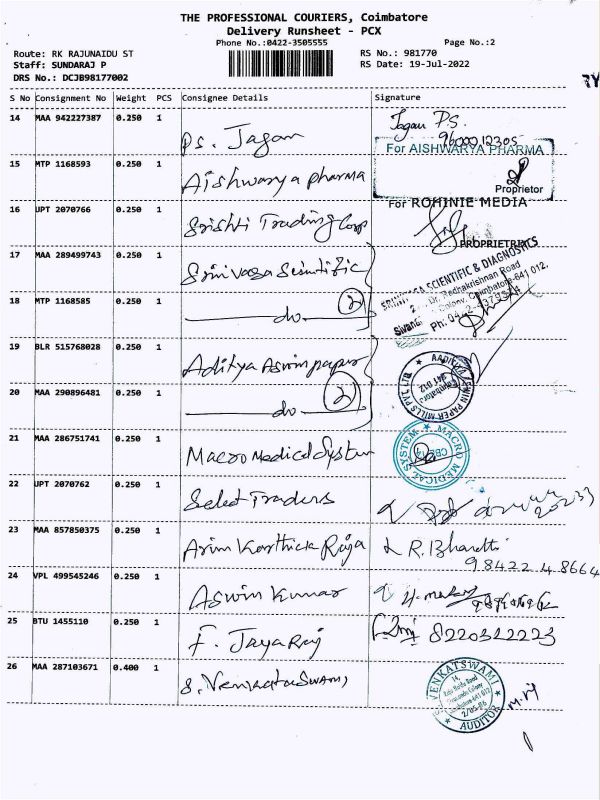 THE PROFESSIONAL COURIERS, Coimbatore
Delivery Runsheet - PCX
Phone No.:0422-3505555 Page No.:2
Route: RK RAJUNAIDU ST RS No.: 981770
Staff: SUNDARAJ P RS Date: 19-Jul-2022
DRS No.: DCJB98177002
S No Consignment No Weight PCS Consignee Details Signature
14 MAA 942227387 0.250 1 Ps. Jagan Jagan P.S.
9600012305
15 MTP 1168593 0.250 1 Aishwarya pharma For AISHWARYA PHARMA
Proprietor
16 UPT 2070766 0.250 1 Srishti Trading Corp For ROHINIE MEDIA
PROPRIETRIX
17 MAA 289499743 0.250 1 Srinivasa Scientific SRINIVASA SCIENTIFIC & DIAGNOSTICS
Dr. Radhakrishnan Road
Colony, Coimbatore-641 012.
18 MTP 1168585 0.250 1 do 2 Ph: 0422
19 BLR 515768028 0.250 1 Aditya Aswin paper
20 MAA 290896481 0.250 1 do 2 PAPER MILLS PVT LTD
21 MAA 286751741 0.250 1 Macro Medical System MACRO MEDICAL SYSTEM
CBE-12
22 UPT 2070762 0.250 1 Select Traders
23 MAA 857850375 0.250 1 Arun Karthick Raja R. Bharathi
98422 48664
24 VPL 499545246 0.250 1 Aswin Kumar
25 BTU 1455110 0.250 1 F. Jayaraj 8220322223
26 MAA 287103671 0.400 1 S. Venkataswami VENKATSWAMI
AUDITOR